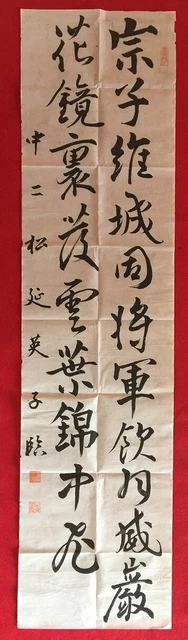 宗子維城固將軍飲月威巖
花鏡裏發雲葉錦中飛
中二松延英子臨